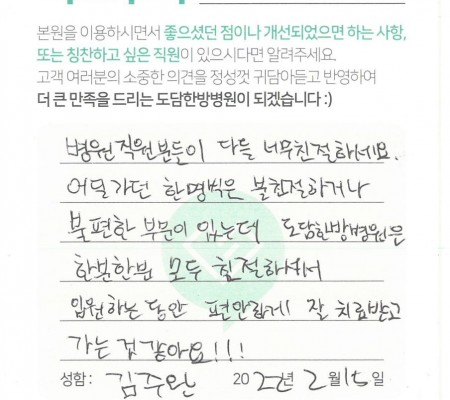 본원을 이용하시면서 좋으셨던 점이나 개선되었으면 하는 사항,
또는 칭찬하고 싶은 직원이 있으시다면 알려주세요.
고객 여러분의 소중한 의견을 정성껏 귀담아듣고 반영하여
더 큰 만족을 드리는 도담한방병원이 되겠습니다 :)
병원직원분들이 다들 너무친절하세요.
어딜가던 한명씩은 불친절하거나
불편한 부분이 있는데 도담한방병원은
한분한분 모두 친절하셔서
입원하는 동안 편안하게 잘 치료받고
가는 것 같아요!!!
성함 : 김주완 2022년 2월 15일